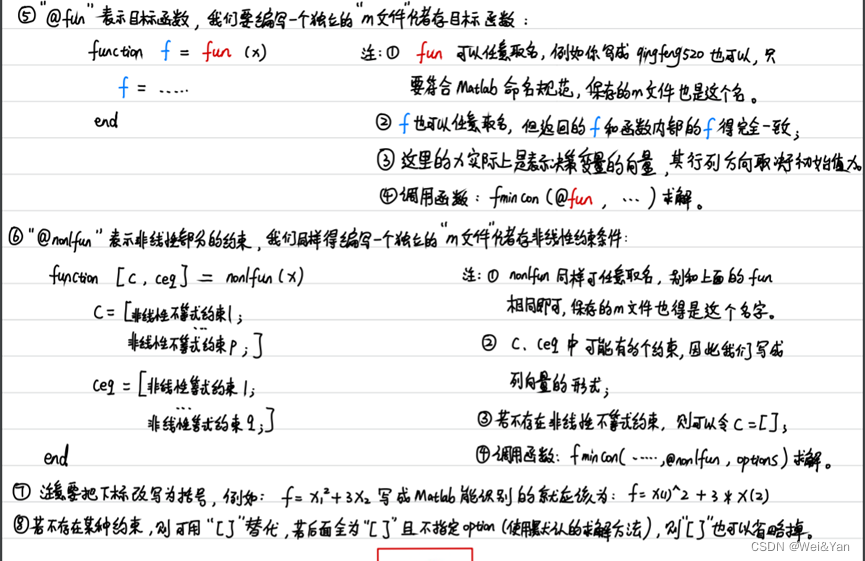 ⑤ "@fun" 表示目标函数，我们要编写一个独立的"m文件"储存目标函数：
function f = fun (x)
注：① fun 可以任意取名，例如你写成 qingfeng520 也可以，只
f = ……
要符合 Matlab 命名规范，保存的m文件也是这个名。
end
② f 也可以任意取名，但返回的 f 和函数内部的 f 得完全一致；
③ 这里的x实际上是表示决策变量的向量，其行列方向取决于初始值x₀
④ 调用函数：fmincon (@fun, …) 求解。
⑥ "@nonlfun" 表示非线性部分的约束，我们同样得编写一个独立的"m文件"储存非线性约束条件：
function [c, ceq] = nonlfun (x)
注：① nonlfun 同样可任意取名，别和上面的 fun
C = [非线性不等式约束1;
相同即可，保存的m文件也得是这个名字。
…
非线性不等式约束p;]
② C、Ceq 中可能有多个约束，因此我们写成
ceq = [非线性等式约束1;
列向量的形式；
…
非线性等式约束q;]
③ 若不存在非线性不等式约束，则可以令 C=[];
end
④ 调用函数：fmincon(……,@nonlfun, options) 求解。
⑦ 注意要把下标改写为括号，例如：f=x₁²+3x₂ 写成Matlab能识别的就应该为：f=x(1)^2+3*x(2)
⑧ 若不存在某种约束，则可用"[]"替代，若后面全为"[]"且不指定option (使用默认的求解方法)，则"[]"也可以省略掉。
CSDN @Wei&Yan